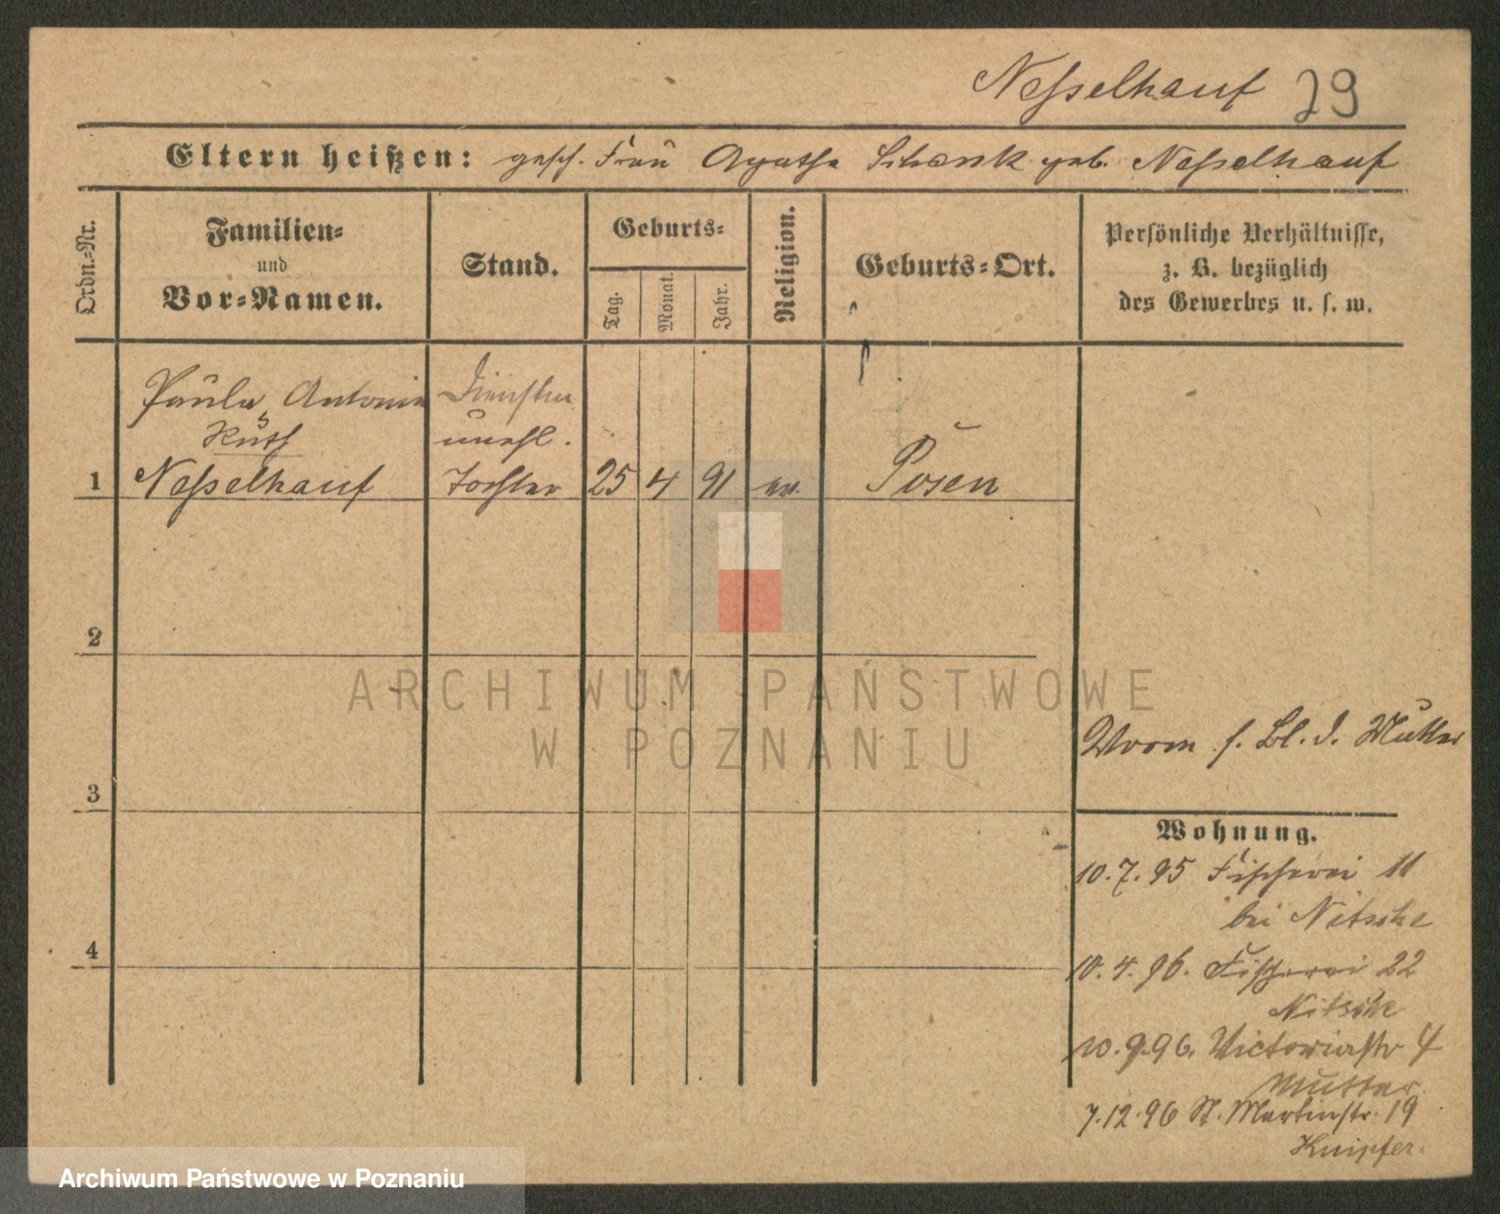 Nesselhauf 29
Eltern heißen: gesch. Frau Agathe Schenk geb. Nesselhauf
Ordn.-Nr.
Familien-
und
Vor-Namen.
Stand.
Geburts-
Tag.
Monat.
Jahr.
Religion.
Geburts-Ort.
Persönliche Verhältnisse,
z. B. bezüglich
des Gewerbes u. s. w.
Paula, Antonie
Ruth
1 Nesselhauf
unehl.
Tochter
25 4 91 ev. Posen
2
3
4
Worm s. Bl. d. Mutter
Wohnung.
10.7.95 Fischerei 11
bei Nitsche
10.4.96. Fischerei 22
Nitsche
10.9.96. Victoriastr 4
Mutter.
7.12.96 St. Martinstr. 19
Knipfer.
ARCHIWUM PAŃSTWOWE
W POZNANIU
Archiwum Państwowe w Poznaniu